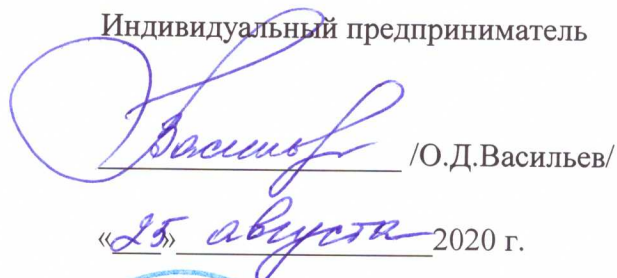 Индивидуальный предприниматель
Васильев /О.Д.Васильев/
«25» августа 2020 г.